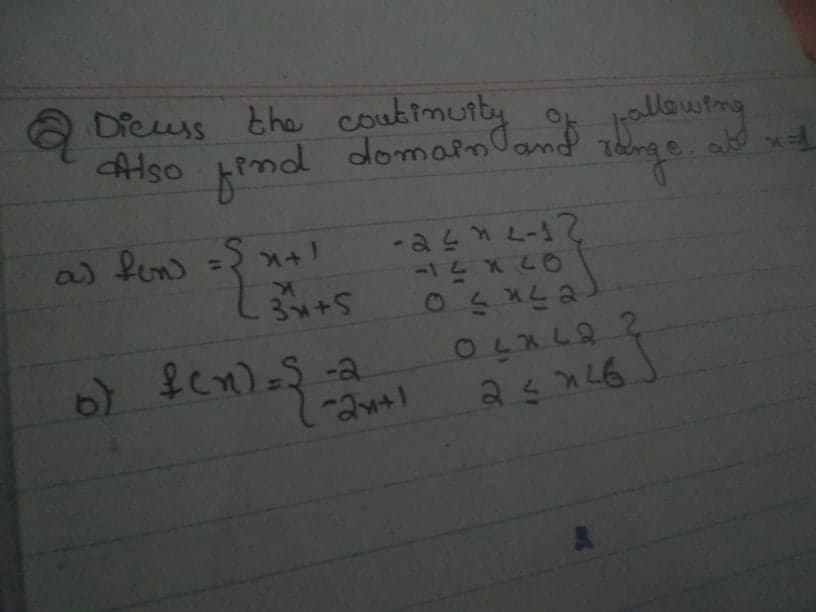 Q Dicuss the coutinuity of following
Also find domain and range. at x=1
a) f(x) = { x+1 -2 ≤ x < -1 }
x -1 ≤ x < 0
3x+5 0 ≤ x ≤ 2
b) f(x) = { -2 0 ≤ x < 2 }
-2x+1 2 ≤ x < 6